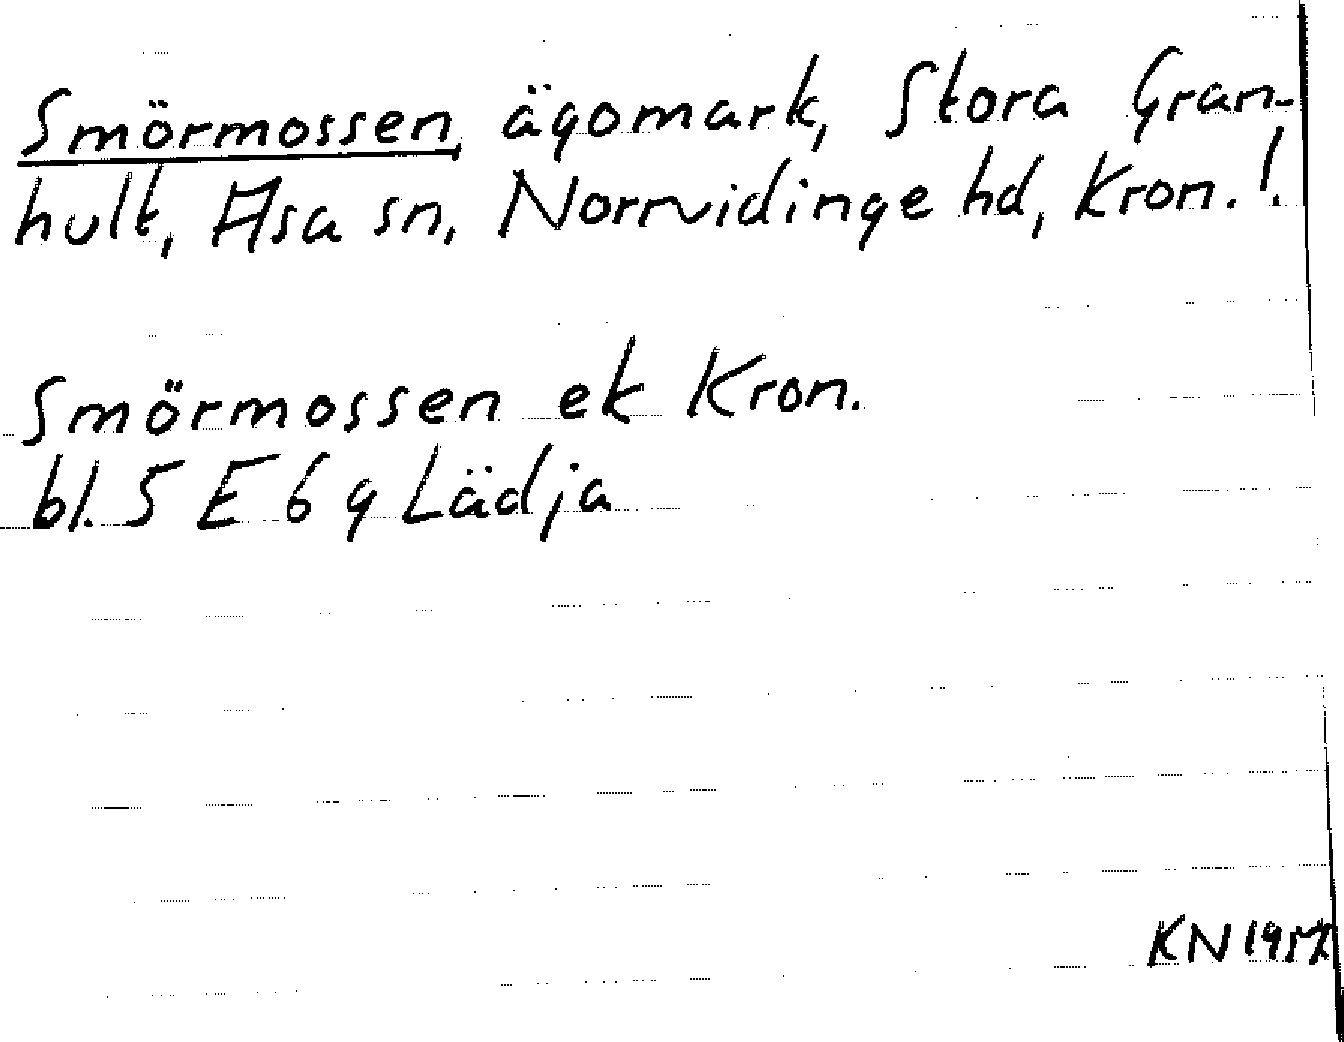 Smörmossen, ägomark, Stora Gran-
hult, Asa sn, Norrvidinge hd, Kron. l.
Smörmossen ek Kron.
bl. 5 E 6 g Lädja
KN 1957